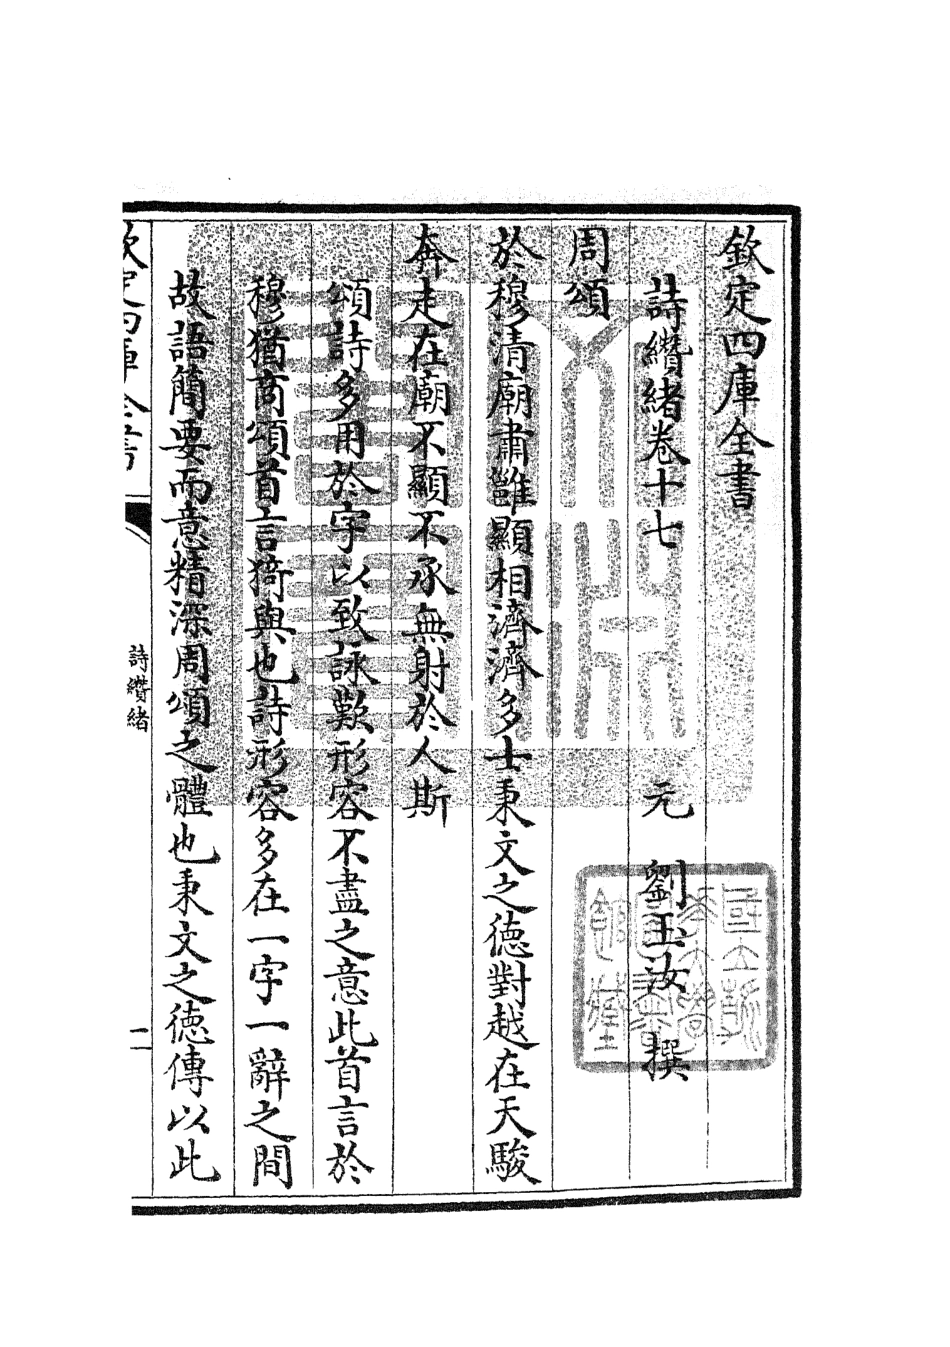 欽定四庫全書
詩纘緒卷十七 元 劉玉汝 撰
周頌
於穆清廟肅雝顯相濟濟多士秉文之德對越在天駿
奔走在廟不顯不承無射於人斯
頌詩多用於字以致詠歎形容不盡之意此首言於
穆猶商頌首言猗與也詩形容多在一字一辭之間
故語簡要而意精深周頌之體也秉文之德傳以此
欽定四庫全書
詩纘緒
一